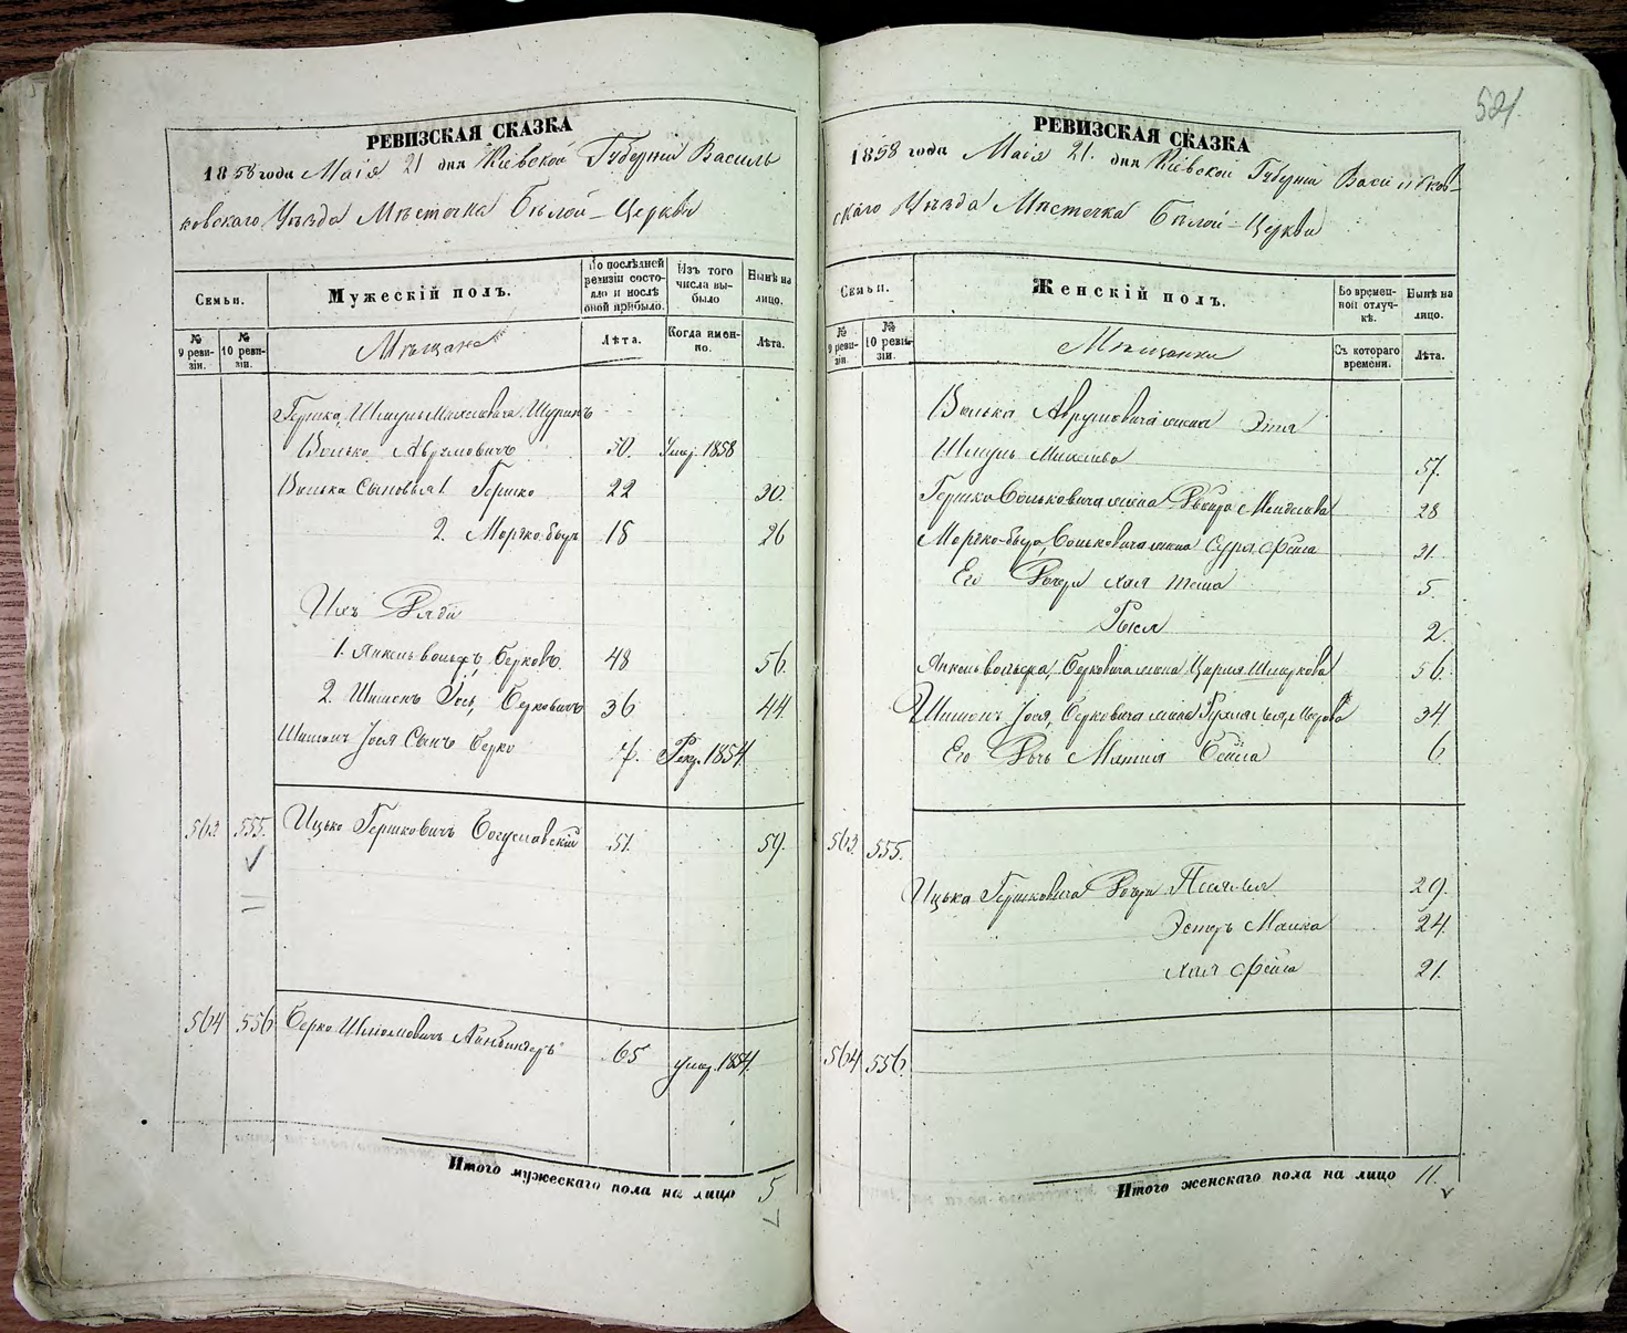 521.
РЕВИЗСКАЯ СКАЗКА
1858 года Маія 21 дня Кіевской Губерніи Василь
ковскаго Уѣзда Мѣстечка Бѣлой-Церкви
Семьи.
Мужескій полъ.
По послѣдней ревизіи состо-
яло и послѣ оной прибыло.
Изъ того числа вы-
было
Нынѣ на лицо.
№ 9 реви-
зіи.
№ 10 реви-
зіи.
Мѣщане
Лѣта.
Когда имен-
но.
Лѣта.
Гершка, Шмуль Шуринъ
Волько Абрумовичъ 50. Умер. 1858
Волька Сыновья 1. Гершко 22 30.
2. Мортко 18 26
Ихъ Дяди
1. Янкель Вольфъ, Берков. 48 56.
2. Шимонъ Іось, Берковичъ 36 44.
Шимонъ Іося Сынъ Берко 7. Рекр. 1854.
563 555. Ицько Гершковичъ Богуславскій 51. 59.
564 556 Берко 65 умер. 1854.
Итого мужескаго пола на лицо 5
РЕВИЗСКАЯ СКАЗКА
1858 года Маія 21. дня Кіевской Губерніи Васильков-
скаго Уѣзда Мѣстечка Бѣлой-Церкви
Семьи.
Женскій полъ.
Во времен-
ной отлуч-
кѣ.
Нынѣ на лицо.
№ 9 реви-
зіи.
№ 10 реви-
зіи.
Мѣщанки
Съ котораго времени.
Лѣта.
Волька Аврумовича жена Этя
Шмуль 57.
Гершка Вольковича жена Двойра 28
Мортко Вольковича жена Сура Фейга 31.
Его Дочери Хая 5.
Рыся 2.
Янкель Вольфа, Берковича жена Цирля 56.
Шимонъ Іося, Берковича жена 34
Его Дочь Бейла 6.
563. 555.
Ицька Гершковича Дочери 29.
Эстеръ Малка 24.
Хая Фейга 21.
564 556.
Итого женскаго пола на лицо 11.